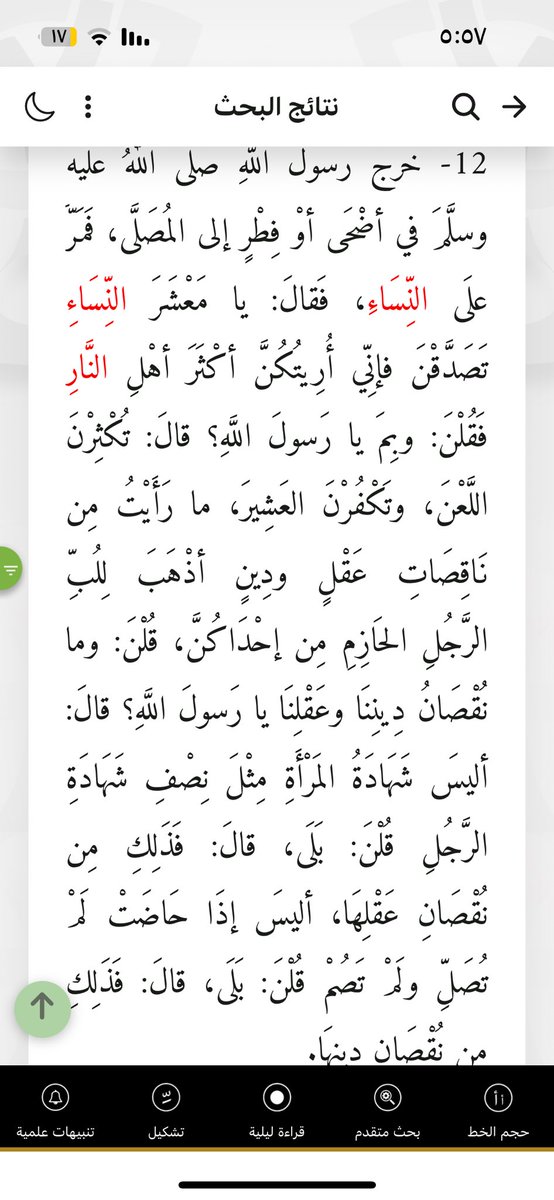 ٥:٥٧
١٧
نتائج البحث
12- خرج رسول اللهِ صلى اللهُ عليه
وسلَّمَ في أضْحَى أوْ فِطْرٍ إلى المُصَلَّى، فَمَرَّ
علَى النِّسَاءِ، فَقالَ: يا مَعْشَرَ النِّسَاءِ
تَصَدَّقْنَ فإنِّي أُرِيتُكُنَّ أكْثَرَ أهْلِ النَّارِ
فَقُلْنَ: وبِمَ يا رَسولَ اللَّهِ؟ قالَ: تُكْثِرْنَ
اللَّعْنَ، وتَكْفُرْنَ العَشِيرَ، ما رَأَيْتُ مِن
نَاقِصَاتِ عَقْلٍ ودِينٍ أذْهَبَ لِلُبِّ
الرَّجُلِ الحَازِمِ مِن إحْدَاكُنَّ، قُلْنَ: وما
نُقْصَانُ دِينِنَا وعَقْلِنَا يا رَسولَ اللَّهِ؟ قالَ:
أليسَ شَهَادَةُ المَرْأَةِ مِثْلَ نِصْفِ شَهَادَةِ
الرَّجُلِ قُلْنَ: بَلَى، قالَ: فَذَلِكِ مِن
نُقْصَانِ عَقْلِهَا، أليسَ إذَا حَاضَتْ لَمْ
تُصَلِّ ولَمْ تَصُمْ قُلْنَ: بَلَى، قالَ: فَذَلِكِ
مِن نُقْصَانِ دِينِهَا.
حجم الخط
بحث متقدم
قراءة ليلية
تشكيل
تنبيهات علمية